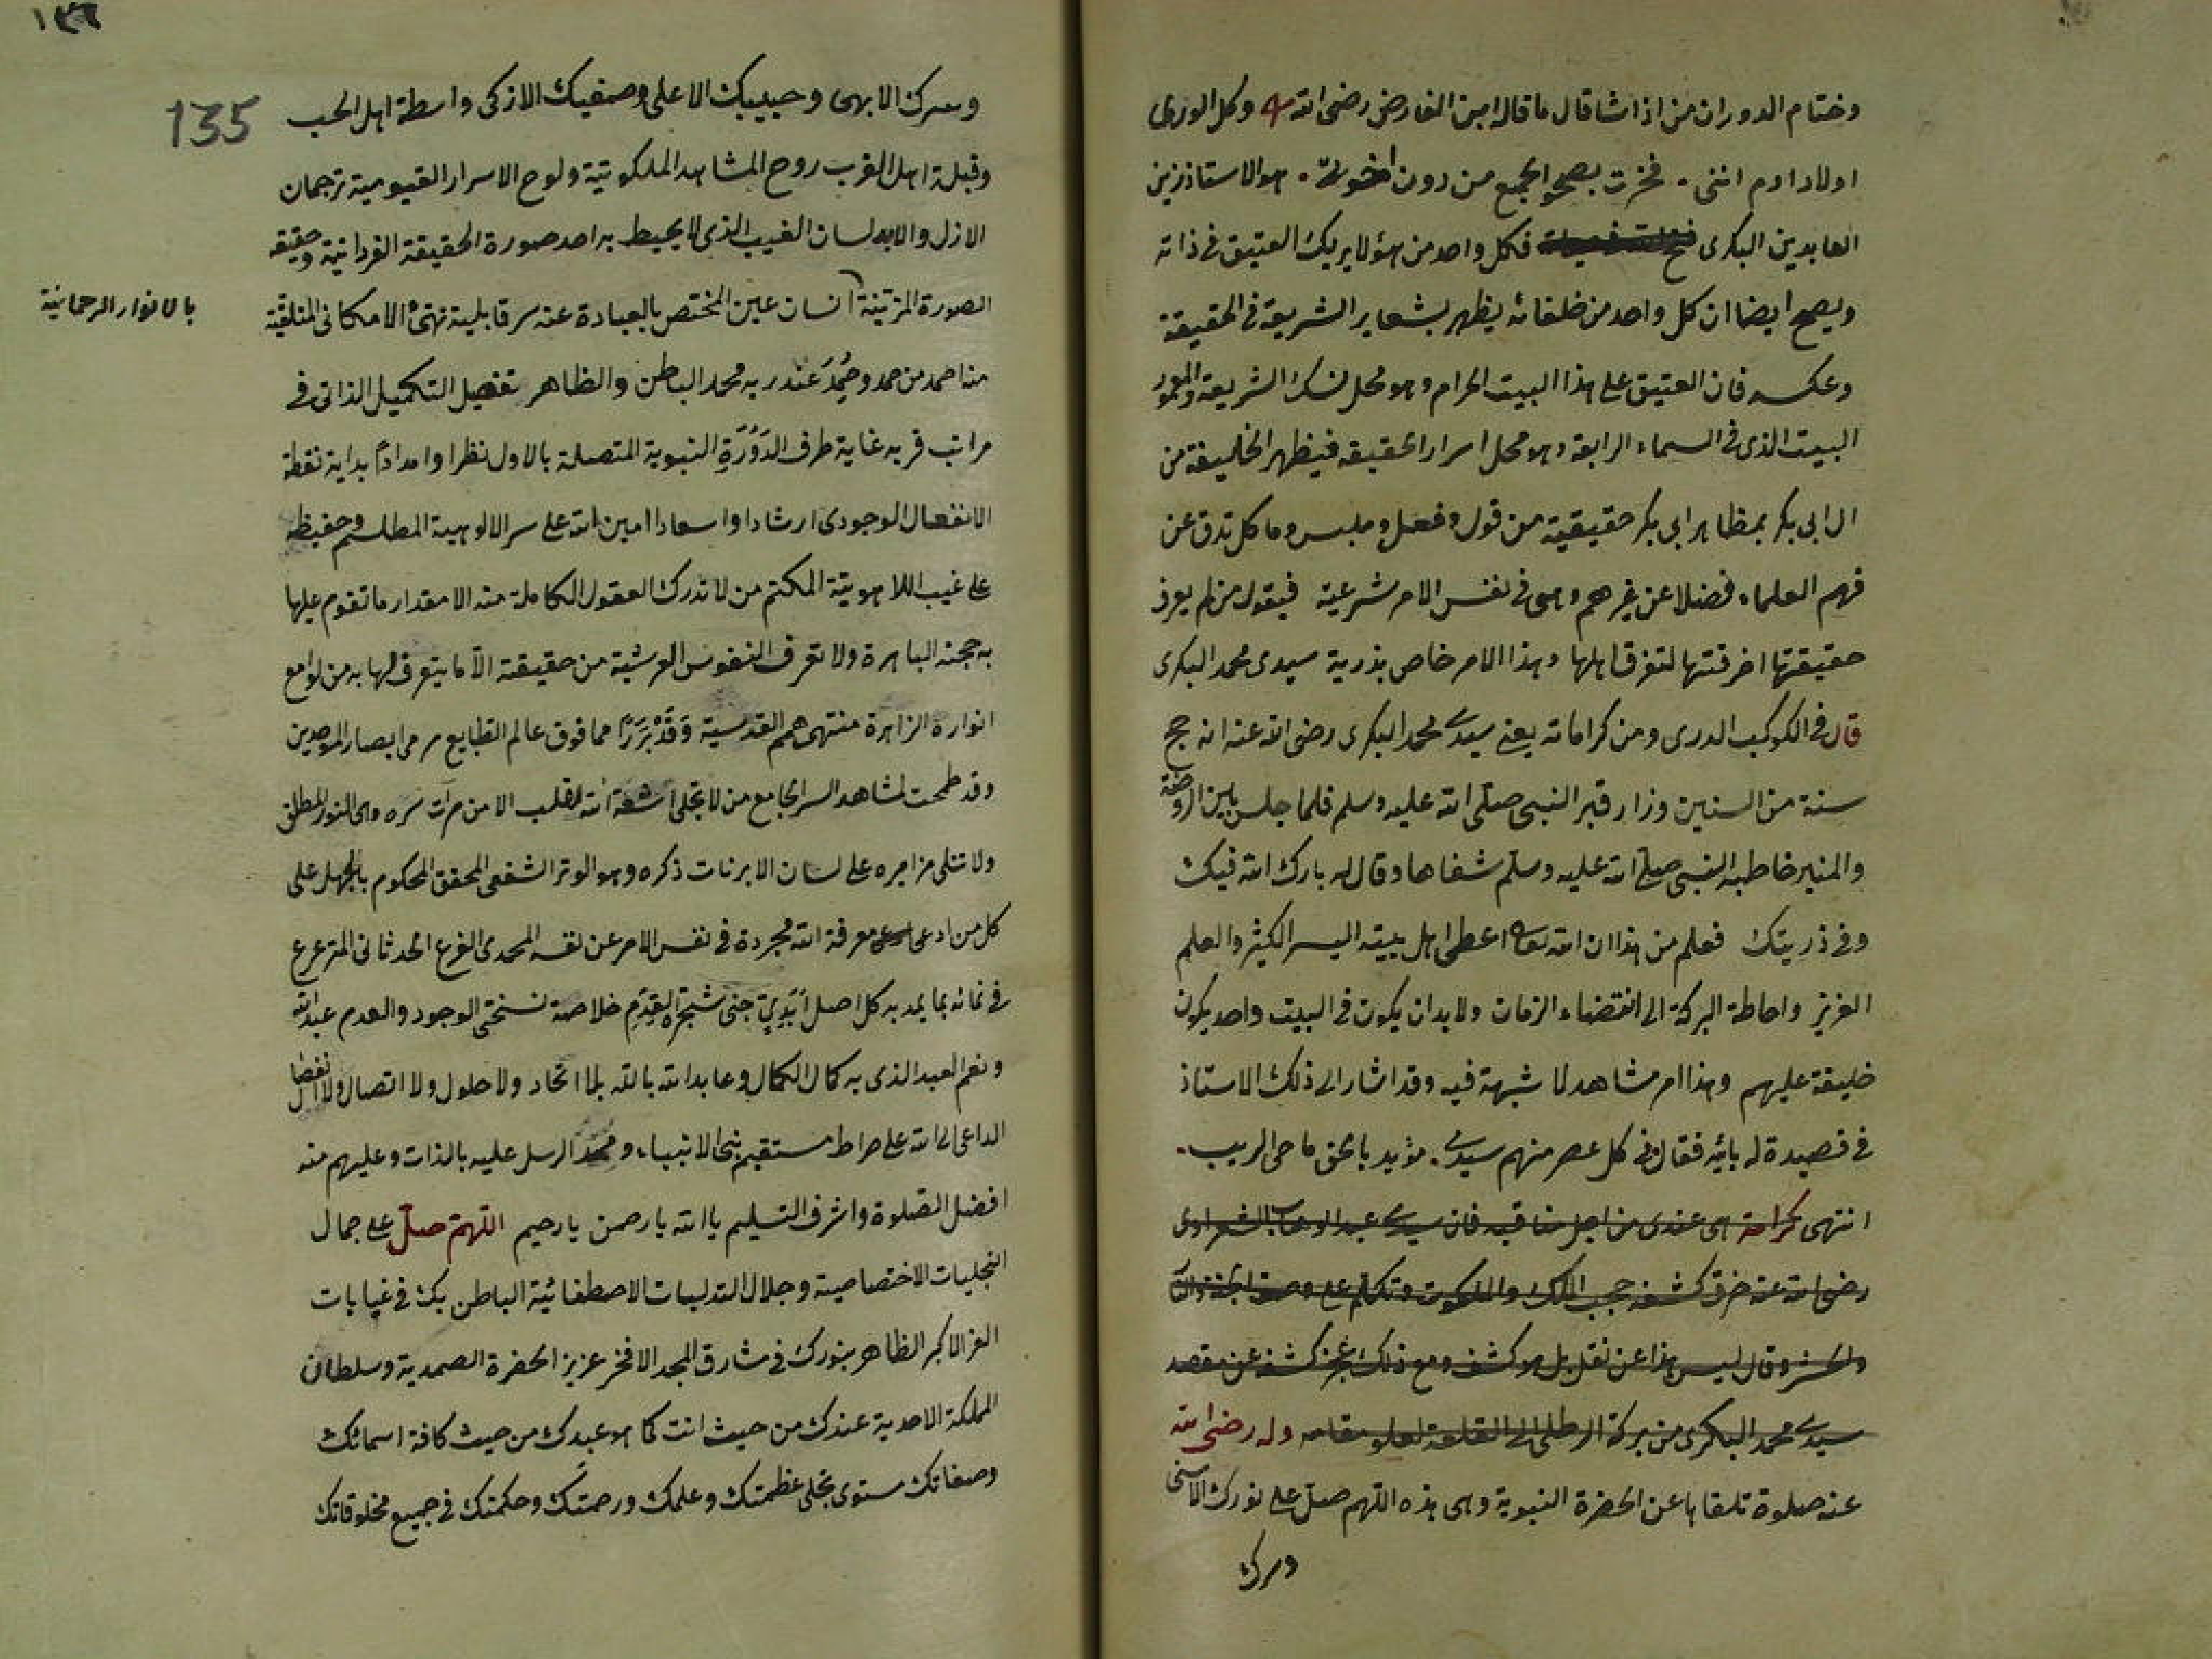 وختام الدوران من اذا شا قال ما قاله ابن الفارض رضى الله وكل الورى
اولاد ادم اننى . فخرت بصحو الجمع من دون اخوتى . هو الاستاذ زين
العابدين البكرى فكل واحد من هؤلا يريك العتيق فى ذاته
ويصح ايضا ان كل واحد من خلفائه يظهر بشعاير الشريعة فى الحقيقة
وعكسه فان العتيق على هذا البيت الحرام وهو محل نسك الشريعة والمعمور
البيت الذى فى السماء الرابعة وهو محل اسرار الحقيقه فيظهر الخليفة من
ال ابى بكر بمظاهر ابى بكر حقيقية من قول وفعل وملبس وماكل تدق عن
فهم العلماء فضلا عن غيرهم وهى فى نفس الامر شرعية فيقول من لم يعرف
حقيقتها اخرقتها لتغرق اهلها وهذا الامر خاص بذرية سيدى محمد البكرى
قال فى الكوكب الدرى ومن كراماته يعنى سيدى محمد البكرى رضى الله عنه انه حج
سنة من السنين وزار قبر النبى صلى الله عليه وسلم فلما جلس بين الروضة
والمنبر خاطبه النبى صلى الله عليه وسلم شفاها وقال له بارك الله فيك
وفى ذريتك فعلم من هذا ان الله تعالى اعطى اهل بيته اليسر الكثير والعلم
العزيز واحاطة البركة الى انقضاء الزمان ولا بد ان يكون فى البيت واحد يكون
خليفة عليهم وهذا امر مشاهد لا شبهة فيه وقد اشار الى ذلك الاستاذ
فى قصيدة له بائية فقال فى كل عصر منهم سيدى . مؤيد بالحق ماحى الريب .
انتهى كرامة هى عندى من اجل مناقبه فان سيدى عبد الوهاب الشعراوى
رضى الله عنه خرق كشفه حجب الملك والملكوت وتكلم على وصف الجنة والنار
والحشر وقال ليس هذا عن نقل بل هو كشف ومع ذلك عجز كشفه عن مقصد
سيدى محمد البكرى من بركة الرطلى الى القلعة لعلو مقامه وله رضى الله
عنه صلوة تلقاها عن الحضرة النبوية وهى هذه اللهم صل على نورك الاسنى
وسرك
١٣٦
135
وسرك الابهى وحبيبك الاعلى وصفيك الازكى واسطة اهل الحب
وقبلة اهل القرب روح المشاهد الملكوتية ولوح الاسرار القيومية ترجمان
الازل والابد لسان الغيب الذى لا يحيط به احد صورة الحقيقة الفردانية وحقيقة
الصورة المزينة انسان عين المختص بالعبادة عنه سر قابلية تهيئ الامكانى المتلقية
بالانوار الرحمانية
منه احمد من حمد وحُمِدَ عند ربه محمد الباطن والظاهر بتفعيل التكميل الذاتى فى
مراتب قربه غاية طرف الدَوْرَةِ النبوية المتصلة بالاول نظرا وامدادا بداية نقطة
الانفعال الوجودى ارشادا واسعادا امين الله على سر الالوهية المطلسم وحفيظه
على غيب اللاهوتية المكتم من لا تدرك العقول الكاملة منه الا مقدار ما تقوم عليها
به حجته الباهرة ولا تعرف النفوس العرشية من حقيقته الا ما يتعرف لها به من لوامع
انواره الزاهرة منتهى همم القدسية وقد برزا مما فوق عالم الطبايع مرمى ابصار الموحدين
وقد طمحت لمشاهد السر الجامع من لا تجلى اشعة الله لقلب الا من مرآت سره وهى النور المطلق
ولا تتلى مزاميره على لسان الا برنات ذكره وهو الوتر الشفعى المحقق المحكوم بالجهل على
كل من ادعى معرفة الله مجردة فى نفس الامر عن نفسه المحمدى الفرع الحدثانى المترعرع
فى نمائه بما يمد به كل اصل ابدى جنى شجرة القدم خلاصة نسختى الوجود والعدم عبد الله
ونعم العبد الذى به كمال الكمال وعابد الله بالله بلا اتحاد ولا حلول ولا اتصال ولا انفصال
الداعى الى الله على صراط مستقيم نبى الانبياء وممد الرسل عليه بالذات وعليهم منه
افضل الصلوة واشرف التسليم يا الله يا رحمن يا رحيم اللهم صل على جمال
التجليات الاختصاصية وجلال التدليات الاصطفائية الباطن بك فى غيابات
العز الاكبر الظاهر بنورك فى مشارق المجد الافخر عزيز الحضرة الصمدية وسلطان
المملكة الاحدية عندك من حيث انت كما هو عبدك من حيث كافة اسمائك
وصفاتك مستوى تجلى عظمتك وعلمك ورحمتك وحكمتك فى جميع مخلوقاتك